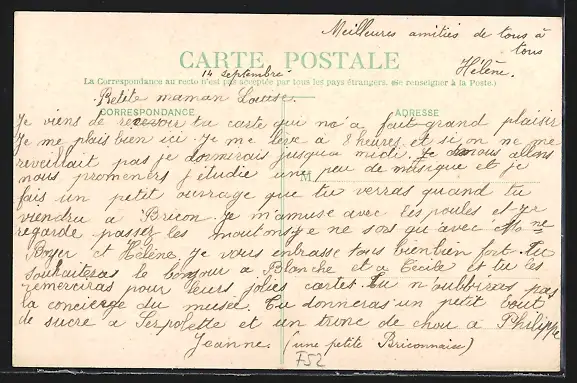 Meilleures amitiés de tous à
tous
Hélène.
CARTE POSTALE
La Correspondance au recto n'est pas acceptée par tous les pays étrangers. (Se renseigner à la Poste.)
14 Septembre
Petite maman Louise.
CORRESPONDANCE
ADRESSE
Je viens de recevoir tu carte qui m'a fait grand plaisir
Je me plais bien ici. Je me lève à 8 heures et si on ne me
reveillait pas je dormirais jusqu'a midi. Je nous allons
nous promener j'etudie une peu de musique et je
M
fais un petit ouvrage que tu verras quand tu
viendra a Bricon. Je m'amuse avec les poules et je
regarde passer les moutons je ne sors qu'avec Mme
Boyer et Hélène, je vous enbrasse tous bien bien fort. Tu
souhaiteras le bonjour a Blanche et a Cecile et tu les
remerciras pour leurs jolies cartes. Tu n'oublieras pas
la concierge du musée. Tu donneras un petit bout
de sucre a Serpolette et un tronc de chou a Philippe
Jeanne. (une petite Briconnaise)
F52